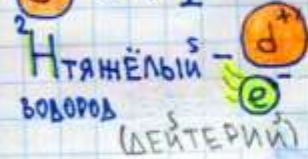 ²Hтяжёлый – d⁺
e⁻
водород
(дейтерий)